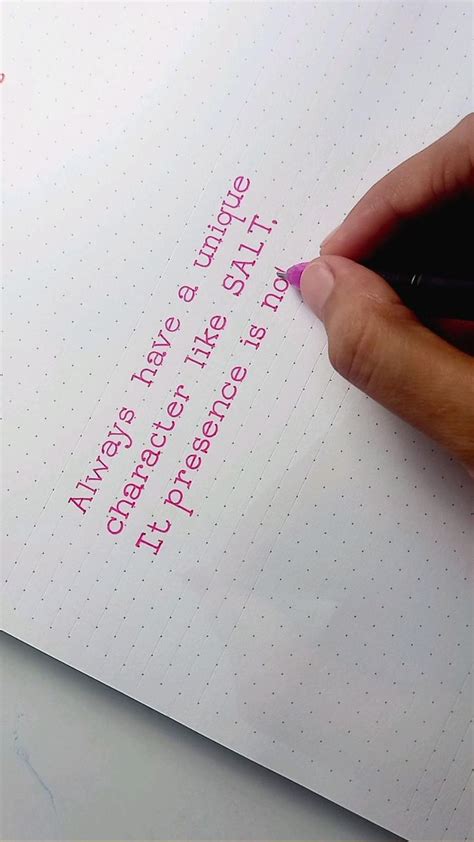 Always have a unique
character like SALT.
It presence is no